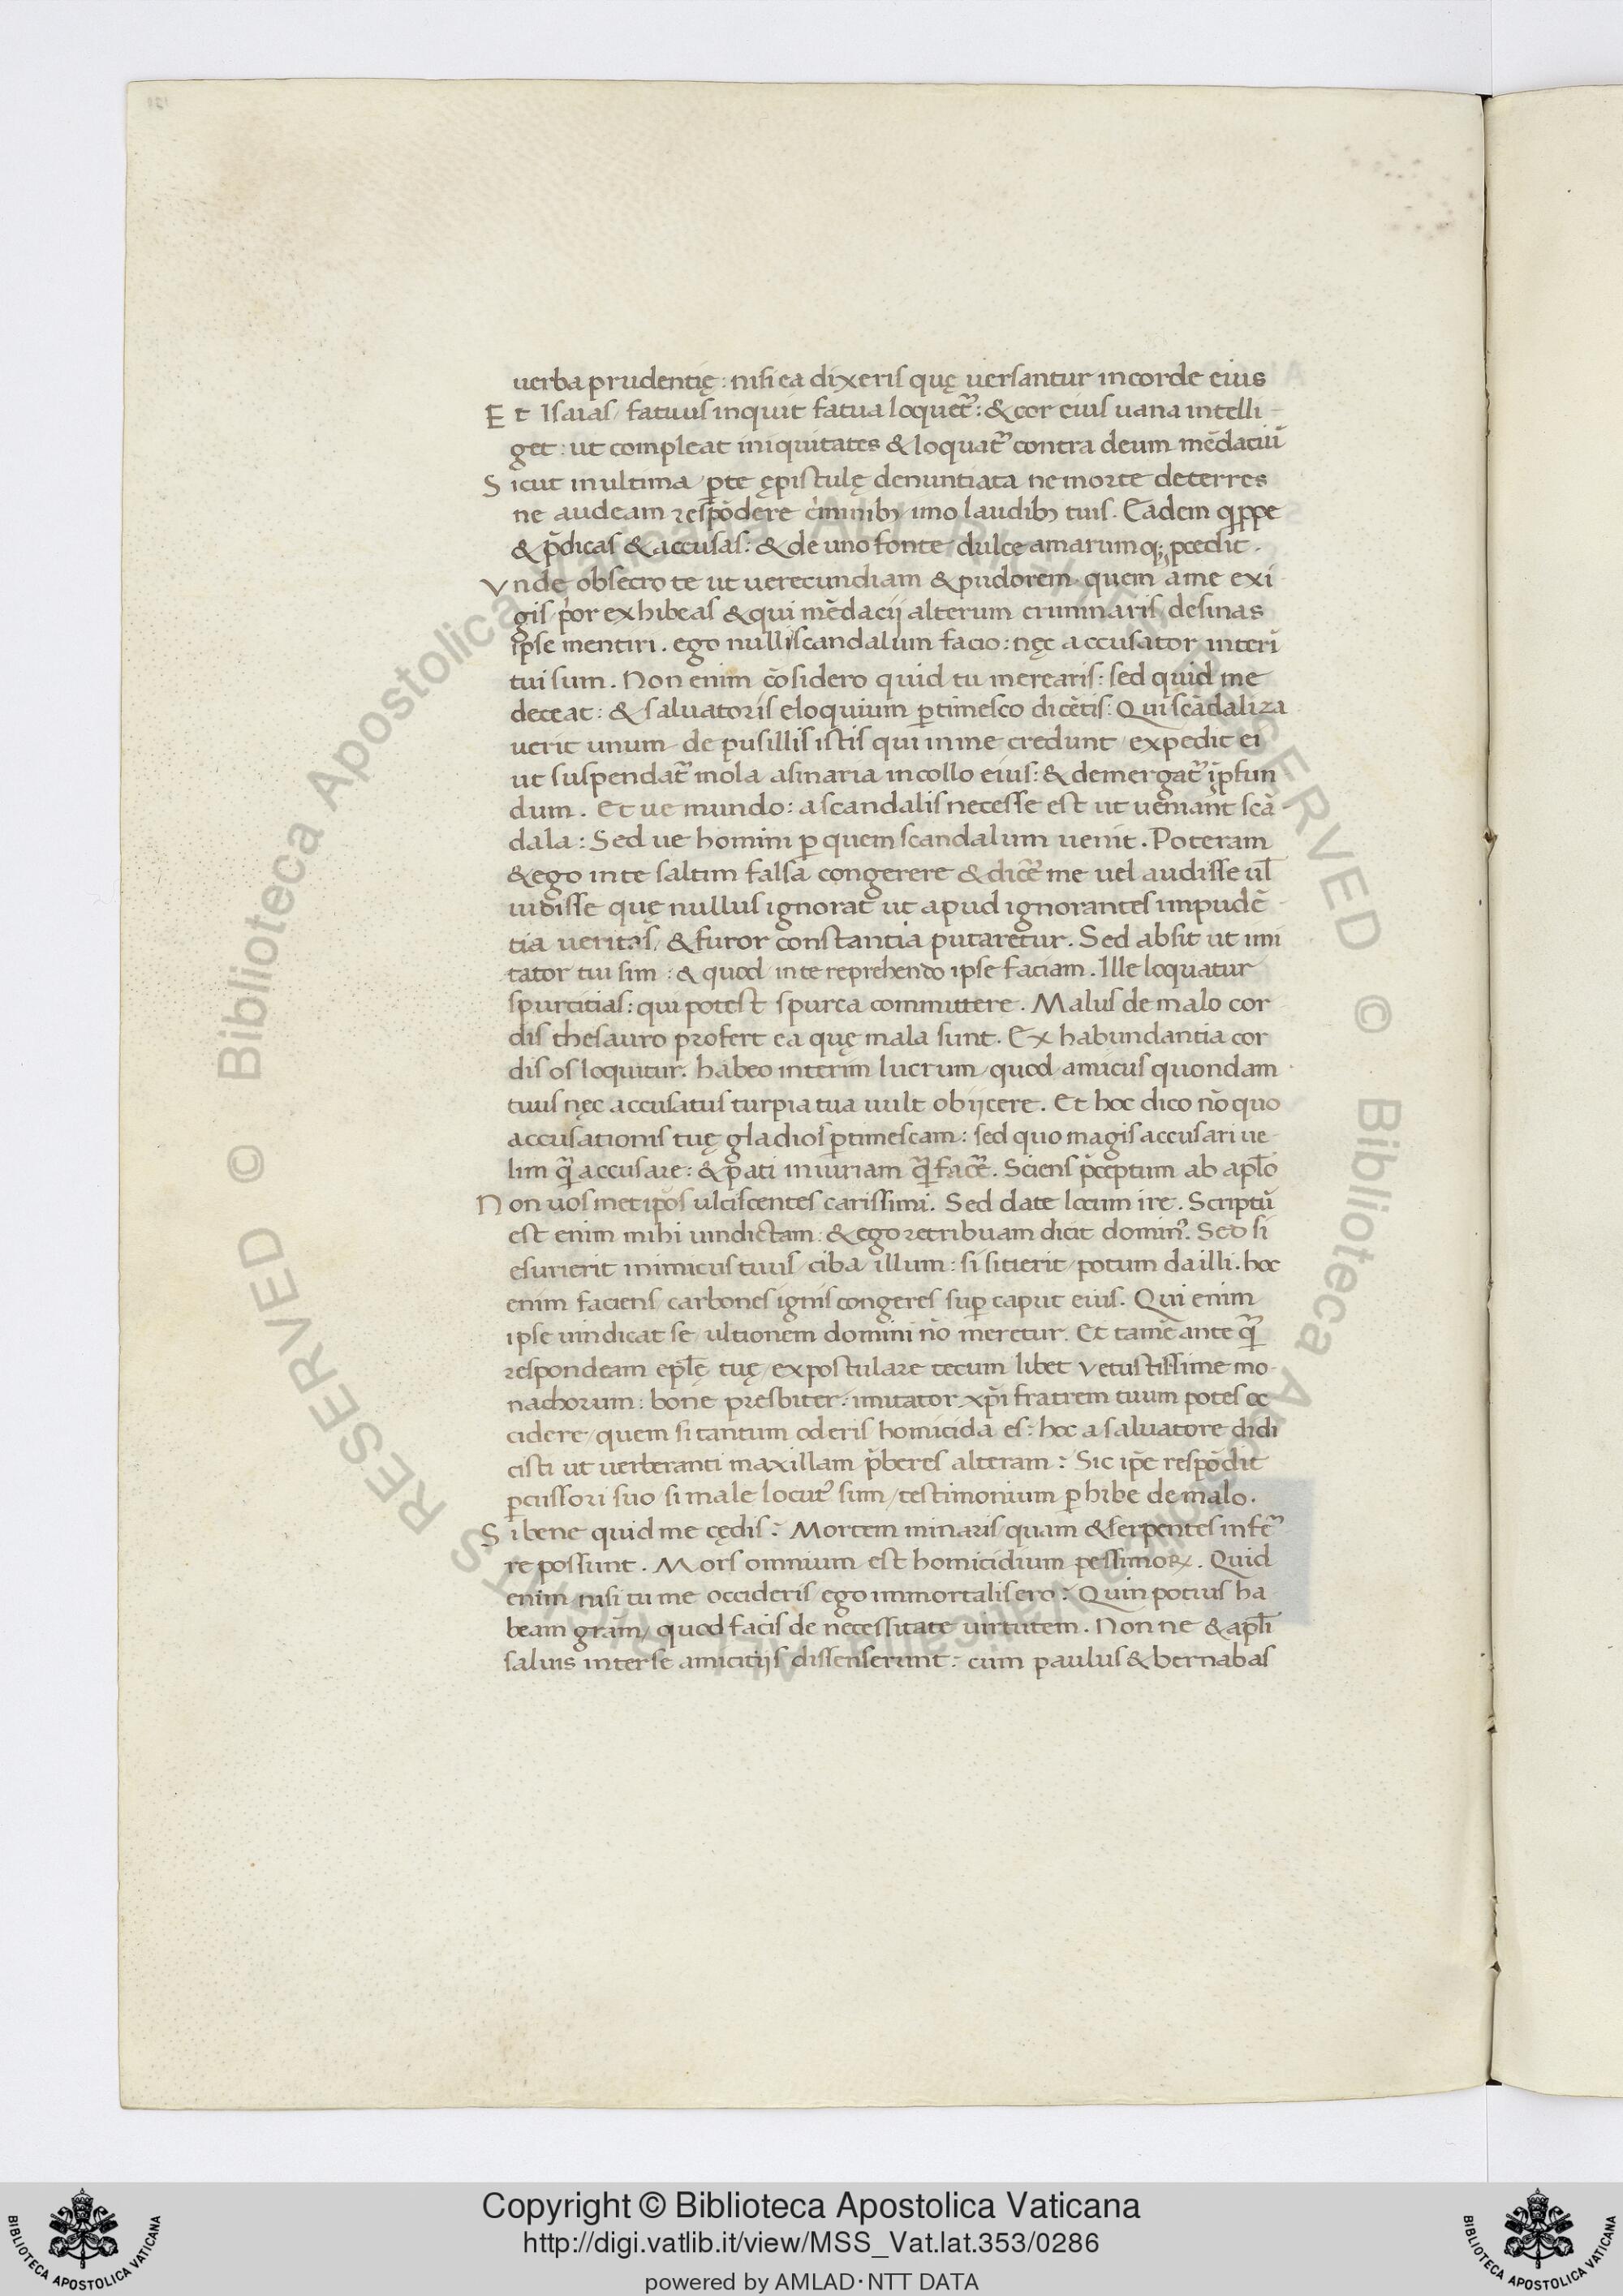 uerba prudentię: nisi ea dixeris quę uersantur in corde eius
Et Isaias / fatuus inquit fatua loquet᷑: & cor eius uana intelli-
get: ut compleat iniquitates & loquat᷑ contra deum mēdaciū
Sicut in ultima ꝑte ępistulę denuntiata ne morte deterres
ne audeam respōdere c̓iminibꝫ imo laudibꝫ tuis. Eadem qꝛppe
& p̄dicas & accusas: & de uno fonte dulce amarumqꝫ ꝓcedit.
Vnde obsecro te ut uerecundiam & pudorem quem a me exi
gis / p̓or exhibeas & qui mēdacij alterum criminaris desinas
ipse mentiri. ego nulli scandalum facio: nęc accusator interī
tui sum. Non enim cōsidero quid tu merearis: sed quid me
deceat: & saluatoris eloquium ꝑtimesco dicētis: Qui scādaliza
uerit unum de pusillis istis qui in me credunt / expedit ei
ut suspendat᷑ mola asinaria in collo eius: & demergat᷑ ī ꝓfun
dum. Et ue mundo: a scandalis necesse est ut ueniant scā
dala: Sed ue homini ꝑ quem scandalum uenit. Poteram
& ego in te saltim falsa congerere & dic̄e me uel audisse ul̄
uidisse quę nullus ignorat ut apud ignorantes impudē
tia ueritas / & furor constantia putaretur. Sed absit ut imi
tator tui sim: & quod in te reprehendo ipse faciam. Ille loquatur
spurcitias: qui potest spurca committere. Malus de malo cor
dis thesauro profert ea quę mala sunt. Ex habundantia cor
dis os loquitur. habeo interim lucrum / quod amicus quondam
tuus nęc accusatus turpia tua uult obijcere. Et hoc dico nō quo
accusationis tuę gladios ꝑtimescam: sed quo magis accusari ue-
lim q̄ꝫ accusare: & pati iniuriam q̄ꝫ fac̄e. Sciens p̄ceptum ab apl̄o
Non uos met ip̄os ulciscentes carissimi. Sed date locum ire. Scriptū
est enim mihi uindictam: & ego retribuam dicit dominꝰ. Sed si
esurierit inimicus tuus / ciba illum: si sitierit / potum da illi. hoc
enim faciens / carbones ignis congeres suꝑ caput eius. Qui enim
ipse uindicat se / ultionem domini nō meretur. Et tamē ante q̄ꝫ
respondeam epl̄ę tuę / expostulare tecum libet Vetustissime mo-
nachorum: bone presbiter: imitator xp̄i fratrem tuum potes oc
cidere / quem si tantum oderis homicida es: hoc a saluatore didi
cisti ut uerberanti maxillam p̄beres alteram: Sic ip̄e respōdit
ꝑcussori suo / si male locutꝰ sum / testimonium ꝑhibe de malo.
Si bene quid me cędis: Mortem minaris quam & serpentes infer᷑
re possunt. Mors omnium est homicidium pessimoꝝ. Quid
enim / nisi tu me occideris ego immortalis ero: Quin potius ha
beam grām / quod facis de necessitate uirtutem. Non ne & apl̄i
saluis inter se amicitijs dissenserunt: cum paulus & bernabas
Copyright © Biblioteca Apostolica Vaticana
http://digi.vatlib.it/view/MSS_Vat.lat.353/0286
powered by AMLAD·NTT DATA